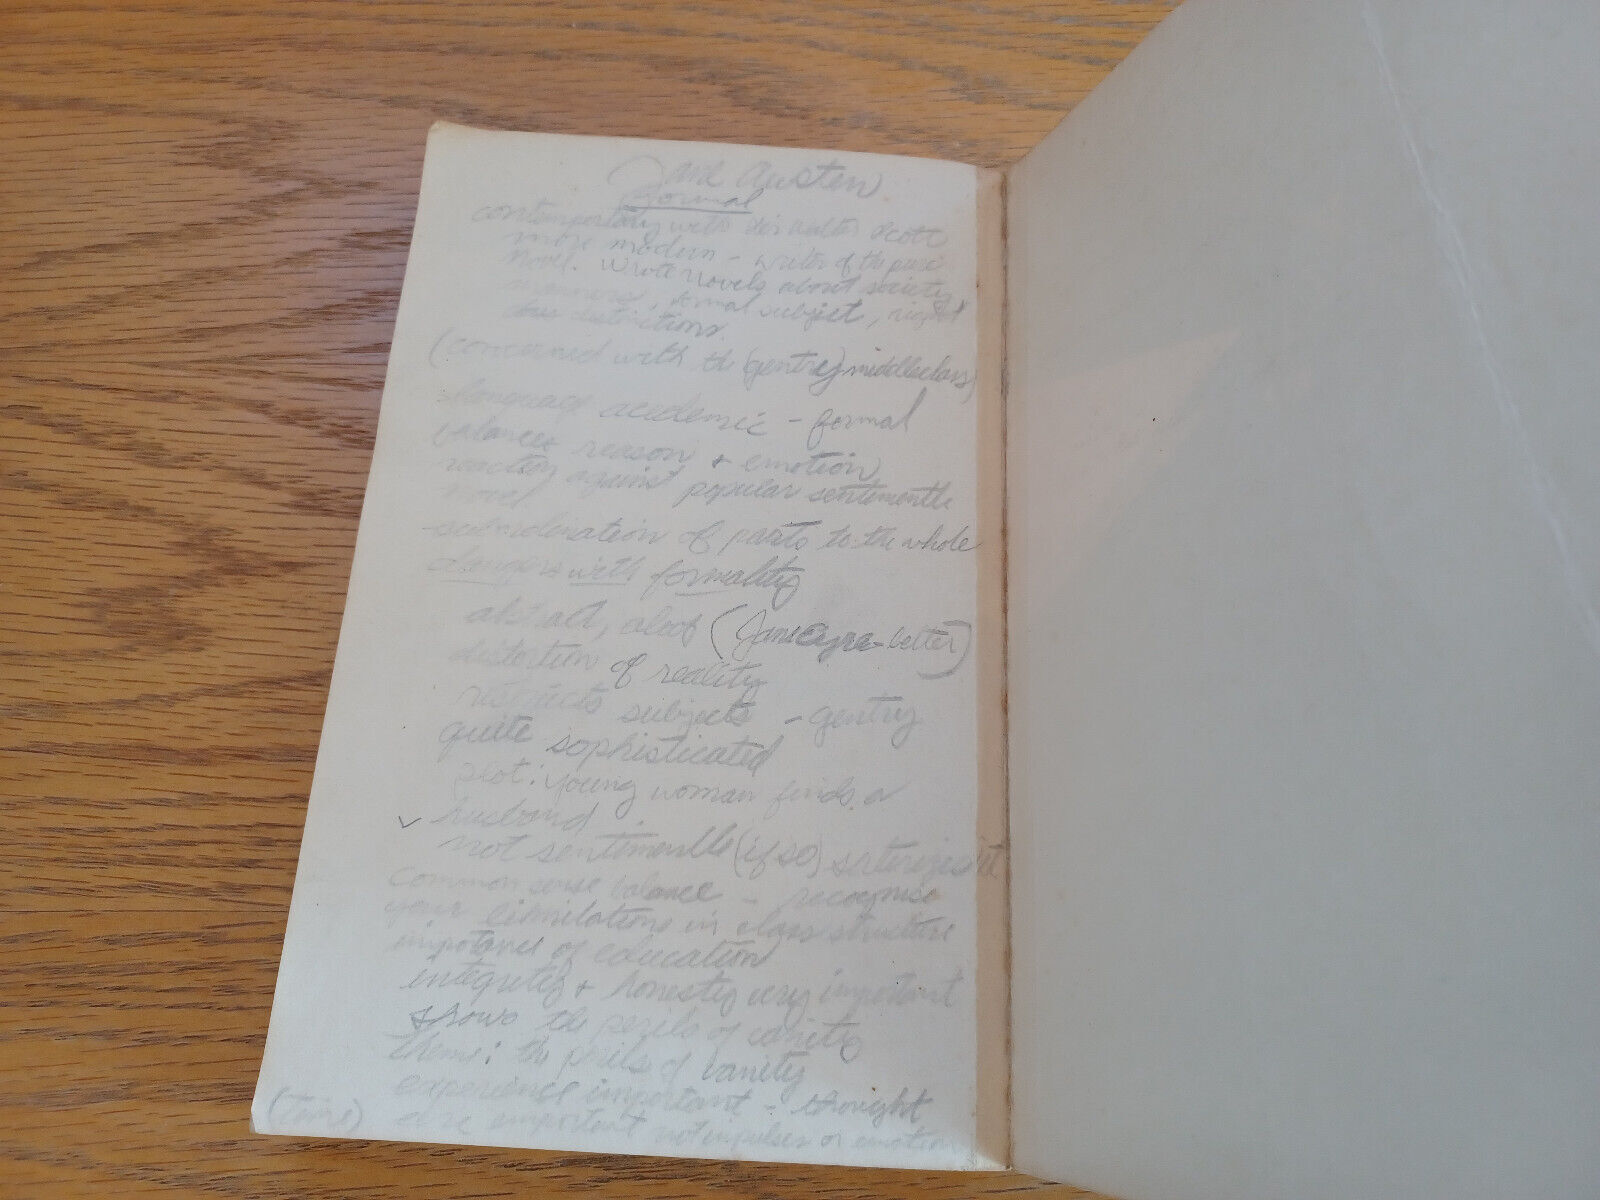 Jane Austen
formal
contemporary with Sir Walter Scott
more modern - writer of the pure
novel. Wrote novels about society,
manners, formal subject, rigid
class distinctions.
(concerned with the (gentry) middleclass)
language academic - formal
balance reason + emotion
reaction against popular sentimentle
novel.
subordination of parts to the whole
dangers with formality
abstract, aloof (Jane Eyre - better)
distortion of reality
restricts subjects - gentry
quite sophisticated
plot: young woman finds a
✓ husband
not sentimentle (if so) saterizes it
Common sense balance - recognise
your limitations in class structure
importance of education
integrity + honesty very important
shows the perils of vanity
theme: the perils of vanity
experience important - thought
(time) are important not impulses or emotion